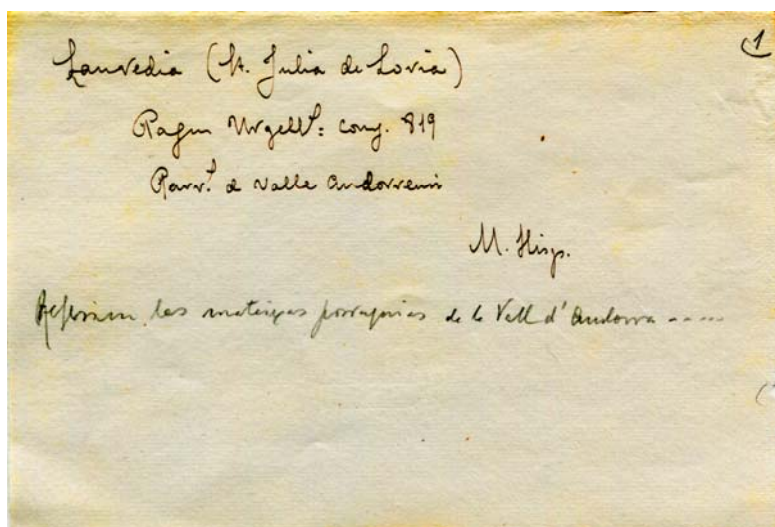 1
Lauredia (St. Julia de Loria)
Pagus Urgell.: cong. 819
Parr. de Valle Andorrensi
M. Hisp.
les mateixas parroquias de la Vall d'Andorra -----